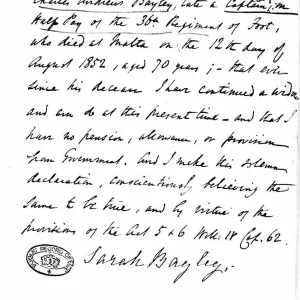 Charles Andrews Bayley, late a Captain, on
Half Pay of the 30th Regiment of Foot,
who died at Malta on the 12th day of
August 1852, aged 70 years; - that ever
since his decease I have continued a widow
and am so at this present time - and that I
have no pension, allowance, or provision
from Government. And I make this solemn
declaration, conscientiously believing the
same to be true, and by virtue of the
provisions of the Act 5 & 6 Will: Cap. 62.
Sarah Bayley.
PUBLIC RECORD OFFICE